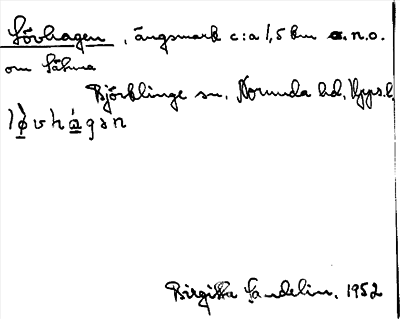 Lövhagen, ängsmark c:a 1,5 km n.n.o.
om Sähma
Björklinge sn, Norunda hd, Upps.l.
Birgitta Sandelin, 1952